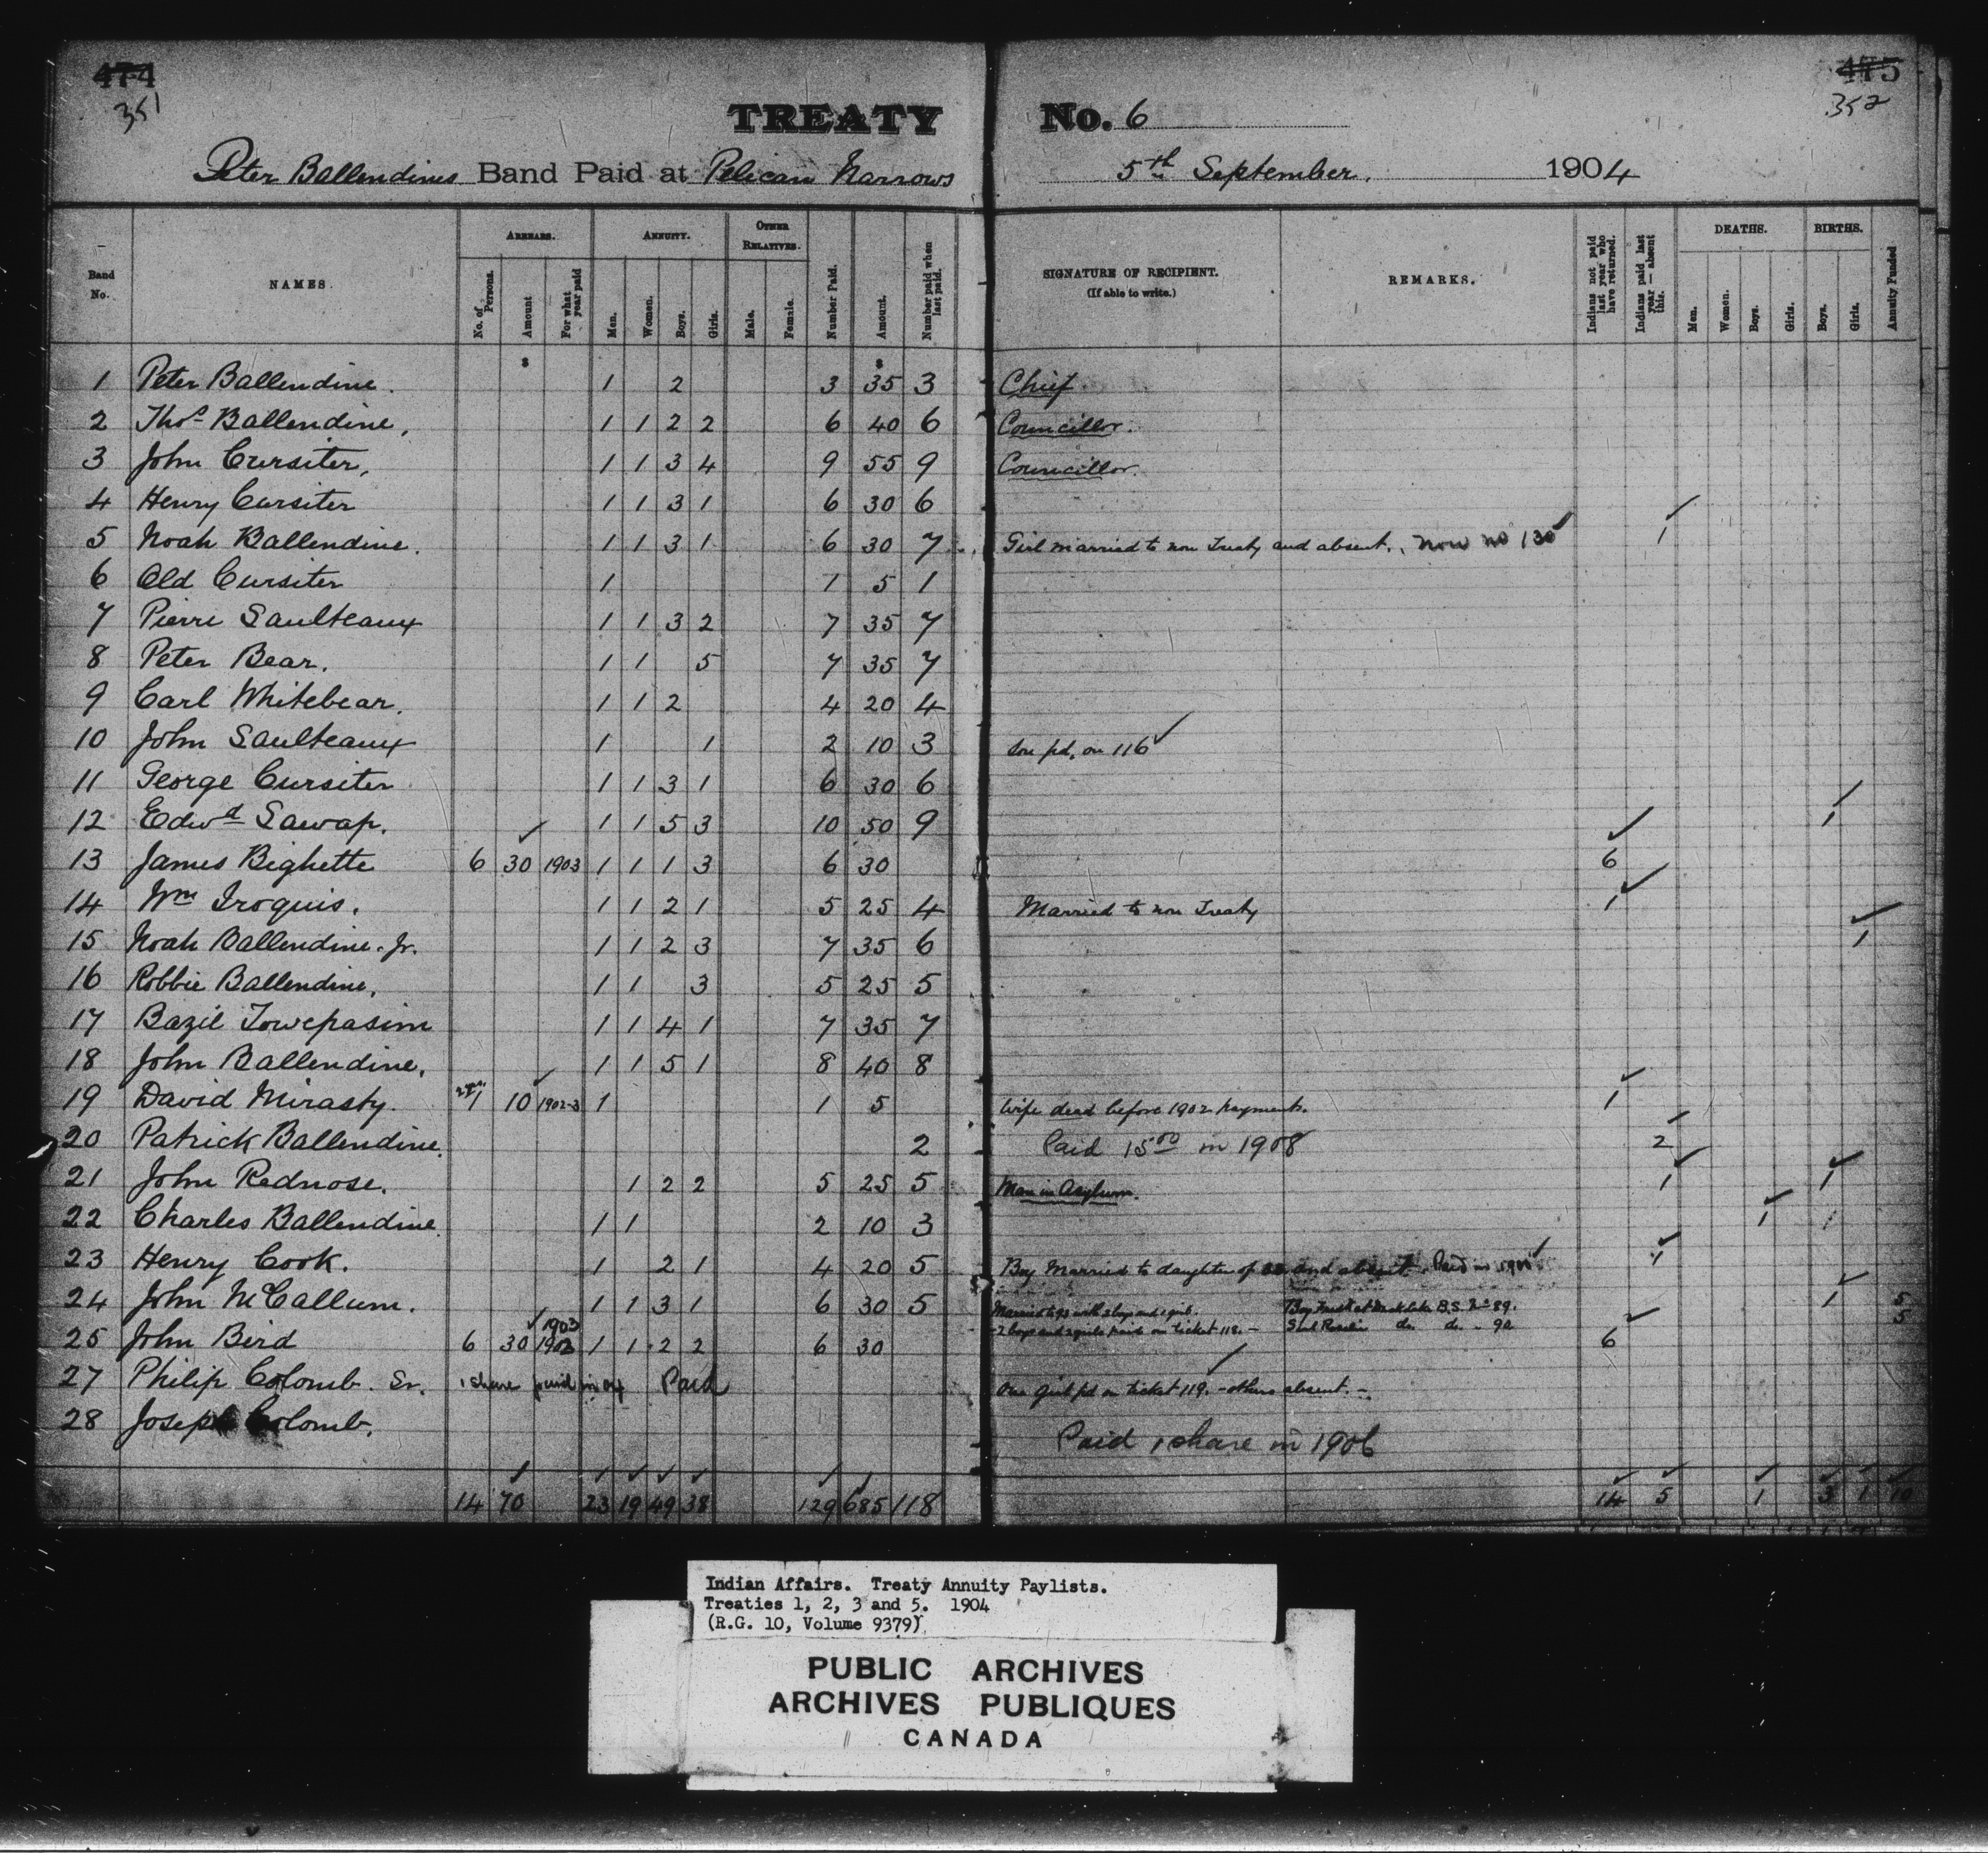 474 475
351 352
TREATY No. 6
Peter Ballendines Band Paid at Pelican Narrows 5th September, 1904
Band No. NAMES. ARREARS. No. of Persons. Amount For what year paid ANNUITY. Men. Women. Boys. Girls. OTHER RELATIVES. Male. Female. Number Paid. Amount. Number paid when last paid. SIGNATURE OF RECIPIENT. (If able to write.) REMARKS. Indians not paid last year who have returned. Indians paid last year — absent this. DEATHS. Men. Women. Boys. Girls. BIRTHS. Boys. Girls. Annuity Funded
$ $
1 Peter Ballendine. 1 2 3 35 3 Chief.
2 Thos Ballendine, 1 1 2 2 6 40 6 Councillor.
3 John Cursiter, 1 1 3 4 9 55 9 Councillor.
4 Henry Cursiter 1 1 3 1 6 30 6
5 Noah Ballendine. 1 1 3 1 6 30 7 Girl married to non Treaty and absent. Now no 130 ✓ 1 ✓
6 Old Cursiter 1 1 5 1
7 Pierre Saulteaux 1 1 3 2 7 35 7
8 Peter Bear. 1 1 5 7 35 7
9 Carl Whitebear. 1 1 2 4 20 4
10 John Saulteaux 1 1 2 10 3 Son pd. on 116 ✓
11 George Cursiter 1 1 3 1 6 30 6
12 Edwd Sawap. 1 1 5 3 10 50 9 1 ✓
13 James Bighette 6 30 ✓ 1903 1 1 1 3 6 30 6 ✓
14 Wm Iroquis. 1 1 2 1 5 25 4 Married to non Treaty 1 ✓
15 Noah Ballendine. Jr. 1 1 2 3 7 35 6 1 ✓
16 Robbie Ballendine, 1 1 3 5 25 5
17 Bazil Towepasim 1 1 4 1 7 35 7
18 John Ballendine, 1 1 5 1 8 40 8
19 David Mirasty. 1 10 ✓ 1902-3 1 1 5 Wife dead before 1902 payments. 1 ✓
20 Patrick Ballendine. 2 Paid 15 00 in 1908 2 ✓
21 John Rednose. 1 2 2 5 25 5 Man in Asylum. 1 ✓ 1 ✓
22 Charles Ballendine. 1 1 2 10 3 1 ✓ 1
23 Henry Cook. 1 2 1 4 20 5 Boy Married to daughter of and absent. Paid ✓ 1 ✓
24 John McCallum. 1 1 3 1 6 30 5 Married with 2 boys and 1 girl. Boy B.S. No 89. 1 ✓ 5
-2 boys and 2 girls paid on ticket 118.- do. do. - 90 5
25 John Bird 6 30 ✓ 1903 1902 1 1 2 2 6 30 6 ✓
27 Philip Colomb. Sr. 1 share paid in 04 Paid One girl pd on ticket 119. - others absent. - ✓
28 Joseph Colomb. Paid 1 share in 1906
14 70 23 19 49 38 129 685 118 14 5 1 3 1 10
Indian Affairs. Treaty Annuity Paylists.
Treaties 1, 2, 3 and 5. 1904
(R.G. 10, Volume 9379)
PUBLIC ARCHIVES
ARCHIVES PUBLIQUES
CANADA